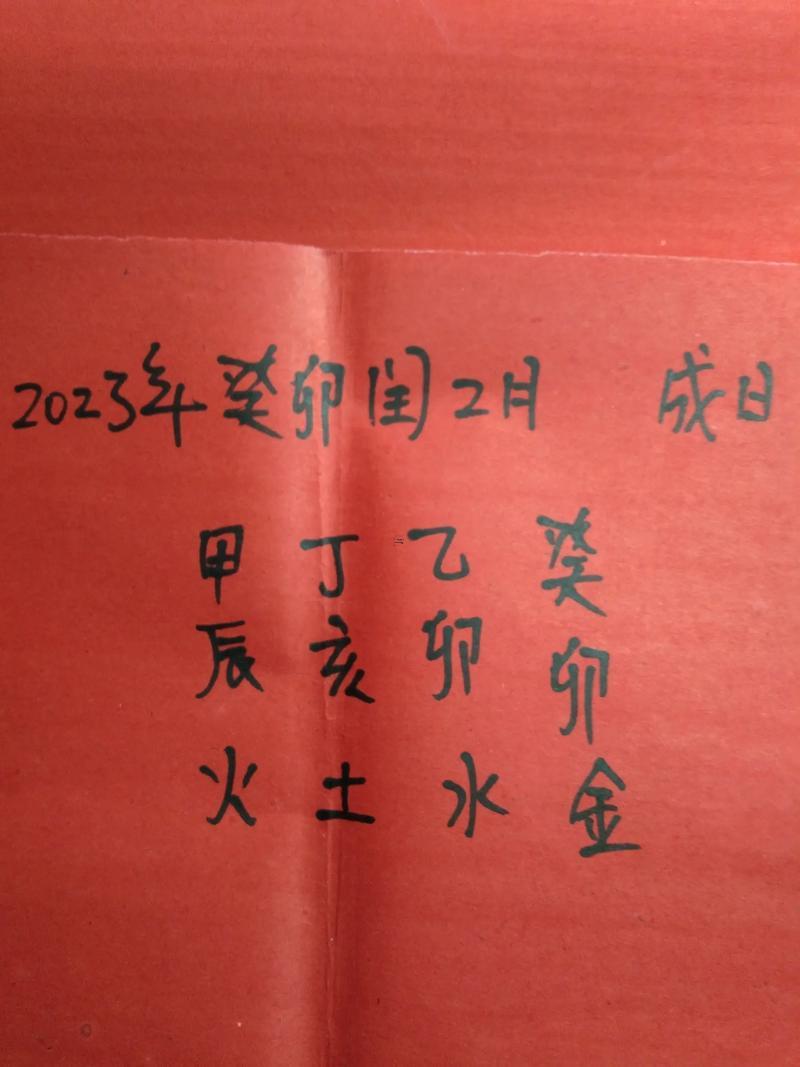 2023年癸卯闰2月 成日
甲 丁 乙 癸
辰 亥 卯 卯
火 土 水 金